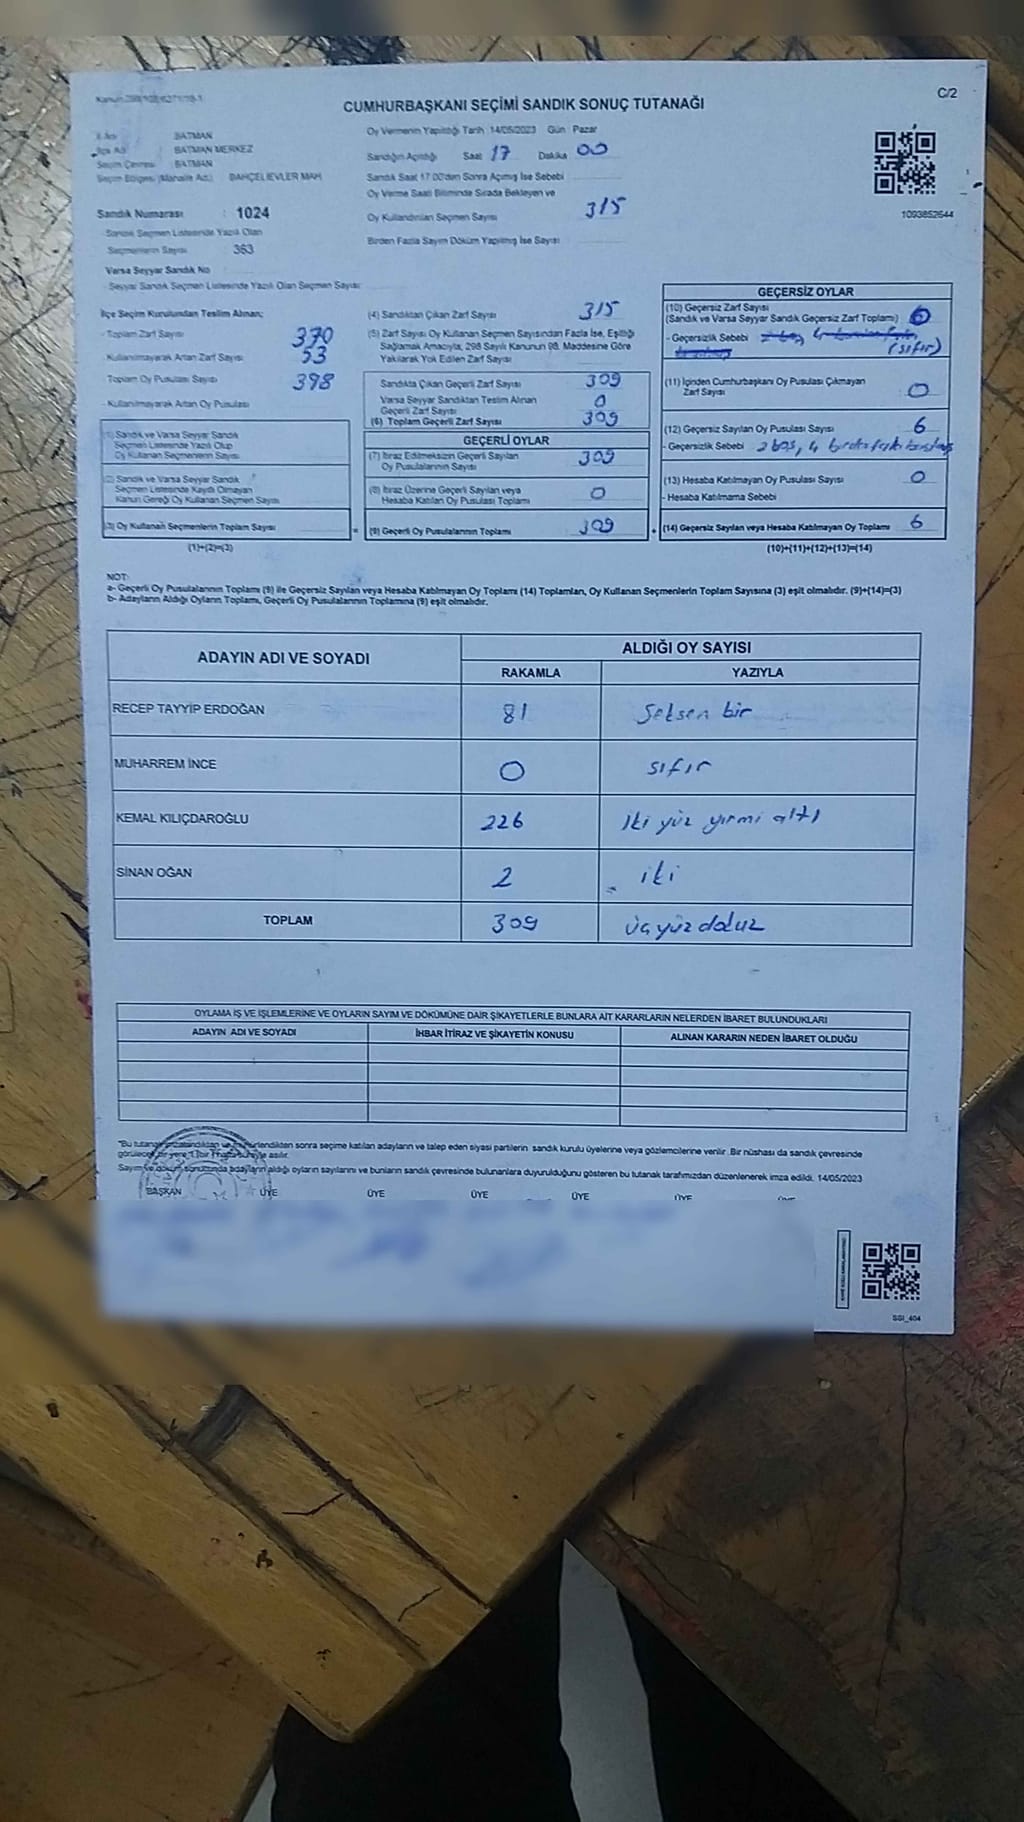 C/2
CUMHURBAŞKANI SEÇİMİ SANDIK SONUÇ TUTANAĞI
İl Adı BATMAN
İlçe Adı BATMAN MERKEZ
Seçim Çevresi BATMAN
Seçim Bölgesi (Mahalle Adı) BAHÇELİEVLER MAH
Sandık Numarası : 1024
Sandık Seçmen Listesinde Yazılı Olan
Seçmenlerin Sayısı 363
Varsa Seyyar Sandık No
Seyyar Sandık Seçmen Listesinde Yazılı Olan Seçmen Sayısı
Oy Vermenin Yapıldığı Tarih 14/05/2023 Gün : Pazar
Sandığın Açıldığı Saat 17 Dakika 00
Sandık Saat 17.00'den Sonra Açılmış İse Sebebi
Oy Verme Saati Bitiminde Sırada Bekleyen ve
Oy Kullandırılan Seçmen Sayısı 315
Birden Fazla Sayım Döküm Yapılmış İse Sayısı
1093852644
İlçe Seçim Kurulundan Teslim Alınan;
- Toplam Zarf Sayısı 370
- Kullanılmayarak Artan Zarf Sayısı 53
Toplam Oy Pusulası Sayısı 398
- Kullanılmayarak Artan Oy Pusulası
(1) Sandık ve Varsa Seyyar Sandık
Seçmen Listesinde Yazılı Olup
Oy Kullanan Seçmenlerin Sayısı
(2) Sandık ve Varsa Seyyar Sandık
Seçmen Listesinde Kaydı Olmayan
Kanun Gereği Oy Kullanan Seçmen Sayısı
(3) Oy Kullanan Seçmenlerin Toplam Sayısı =
(1)+(2)=(3)
(4) Sandıktan Çıkan Zarf Sayısı 315
(5) Zarf Sayısı Oy Kullanan Seçmen Sayısından Fazla İse, Eşitliği
Sağlamak Amacıyla, 298 Sayılı Kanunun 98. Maddesine Göre
Yakılarak Yok Edilen Zarf Sayısı
Sandıkta Çıkan Geçerli Zarf Sayısı 309
Varsa Seyyar Sandıktan Teslim Alınan
Geçerli Zarf Sayısı 0
(6) Toplam Geçerli Zarf Sayısı 309
GEÇERLİ OYLAR
(7) İtiraz Edilmeksizin Geçerli Sayılan
Oy Pusulalarının Sayısı 309
(8) İtiraz Üzerine Geçerli Sayılan veya
Hesaba Katılan Oy Pusulası Toplamı 0
(9) Geçerli Oy Pusulalarının Toplamı 309 +
GEÇERSİZ OYLAR
(10) Geçersiz Zarf Sayısı
(Sandık ve Varsa Seyyar Sandık Geçersiz Zarf Toplamı)
- Geçersizlik Sebebi
(sıfır)
(11) İçinden Cumhurbaşkanı Oy Pusulası Çıkmayan
Zarf Sayısı 0
(12) Geçersiz Sayılan Oy Pusulası Sayısı 6
- Geçersizlik Sebebi 2 boş, 4
(13) Hesaba Katılmayan Oy Pusulası Sayısı 0
- Hesaba Katılmama Sebebi
(14) Geçersiz Sayılan veya Hesaba Katılmayan Oy Toplamı 6
(10)+(11)+(12)+(13)=(14)
NOT:
a- Geçerli Oy Pusulalarının Toplamı (9) ile Geçersiz Sayılan veya Hesaba Katılmayan Oy Toplamı (14) Toplamları, Oy Kullanan Seçmenlerin Toplam Sayısına (3) eşit olmalıdır. (9)+(14)=(3)
b- Adayların Aldığı Oyların Toplamı, Geçerli Oy Pusulalarının Toplamına (9) eşit olmalıdır.
ADAYIN ADI VE SOYADI ALDIĞI OY SAYISI
RAKAMLA YAZIYLA
RECEP TAYYİP ERDOĞAN 81 Seksen bir
MUHARREM İNCE 0 sıfır
KEMAL KILIÇDAROĞLU 226 iki yüz yirmi altı
SİNAN OĞAN 2 iki
TOPLAM 309 üçyüz dokuz
OYLAMA İŞ VE İŞLEMLERİNE VE OYLARIN SAYIM VE DÖKÜMÜNE DAİR ŞİKAYETLERLE BUNLARA AİT KARARLARIN NELERDEN İBARET BULUNDUKLARI
ADAYIN ADI VE SOYADI İHBAR İTİRAZ VE ŞİKAYETİN KONUSU ALINAN KARARIN NEDEN İBARET OLDUĞU
"Bu tutanak sonra seçime katılan adayların ve talep eden siyasi partilerin sandık kurulu üyelerine veya gözlemcilerine verilir. Bir nüshası da sandık çevresinde
görülecek bir yere 1 (bir) hafta süreyle asılır.
Sayım ve döküm sonucunda adayların aldığı oyların sayılarını ve bunların sandık çevresinde bulunanlara duyurulduğunu gösteren bu tutanak tarafımızdan düzenlenerek imza edildi. 14/05/2023
BAŞKAN ÜYE ÜYE ÜYE ÜYE ÜYE
SSI_404